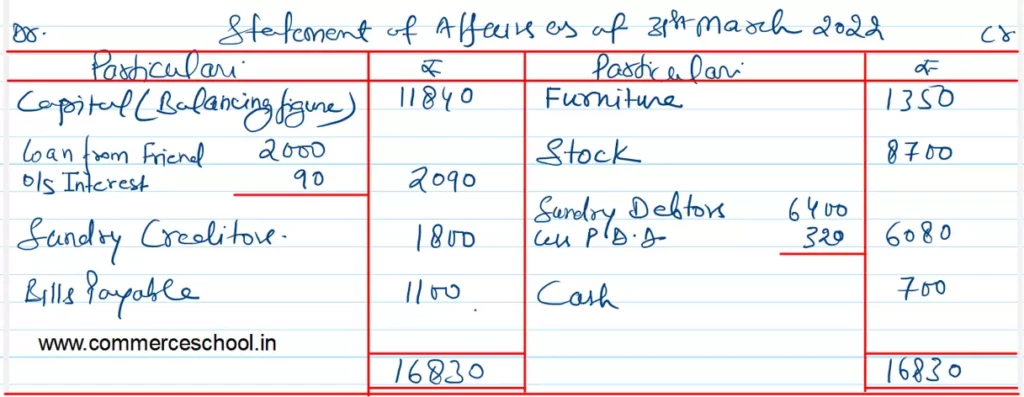 Dr. Statement of Affairs as of 31st March 2022 Cr
Particulars ₹ Particulars ₹
Capital (Balancing figure) 11840 Furniture 1350
Loan from Friend 2000 Stock 8700
O/s Interest 90 2090
Sundry Debtors 6400
Sundry Creditors. 1800 Less P.B.D 320 6080
Bills Payable 1100 Cash 700
www.commerceschool.in
16830 16830